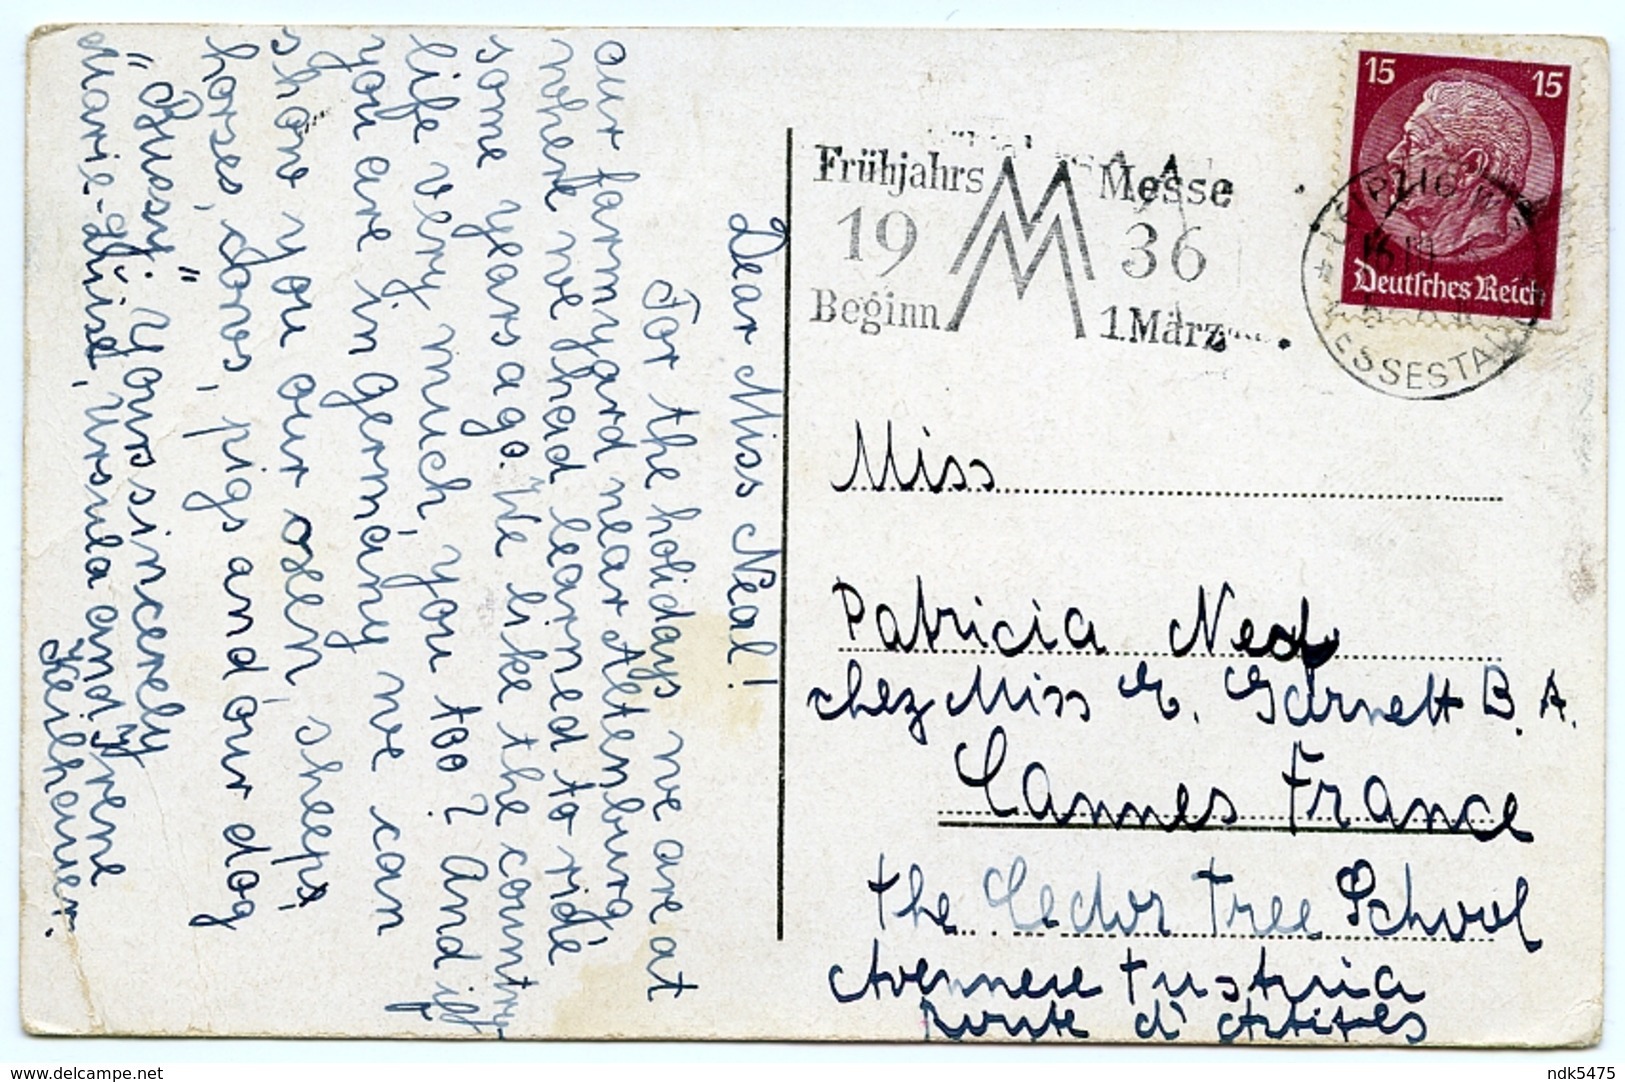 Dear Miss Neal!
For the holidays we are at
our farmyard near Altenburg
where we had learned to ride
some years ago. We like the country
life very much, you too? And if
you are in germany we can
show you our oxen, sheeps,
horses, doves, pigs and our dog
"Bussy". Yours sincerely
Marie-Luise, Ursula and Irene
Keilhauer.
Frühjahrs Messe
19 36
Beginn 1. März
15 15
Deutsches Reich
LEIPZIG
MESSESTADT
Miss
Patricia Neal
chez Miss E. Garnett B. A.
Cannes France
the Cedar Tree School
Avennue
Route d'
www.delcampe.net
ndk5475